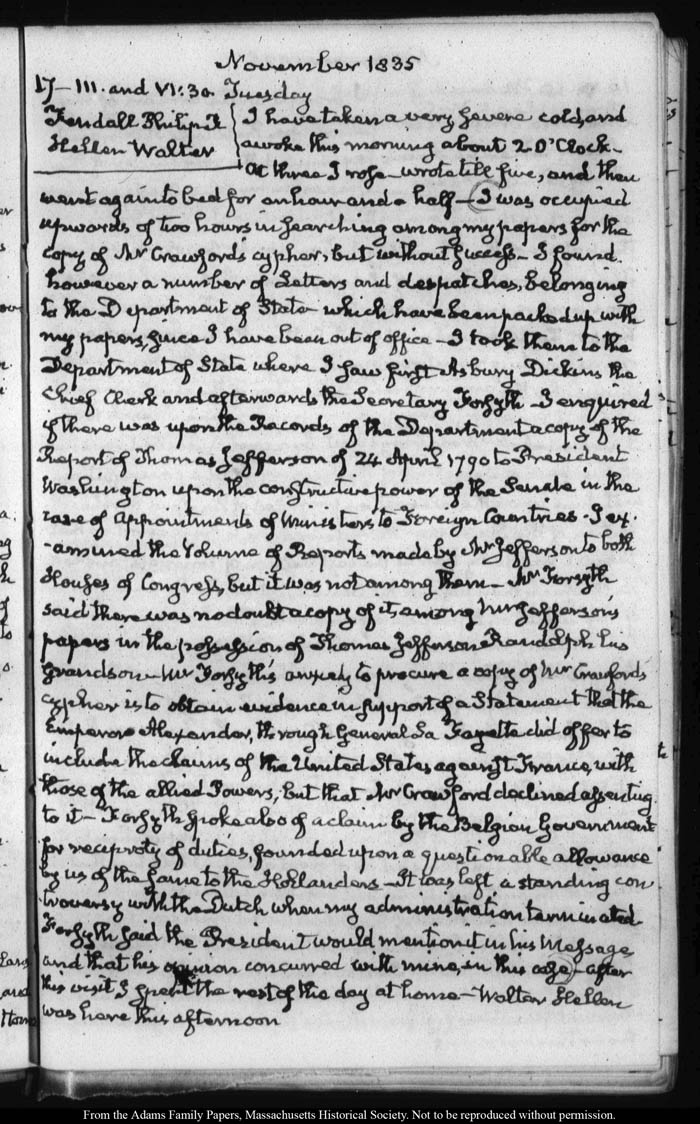 November 1835
17 — III. and VI: 30. Tuesday
Fendall Philip R
Hellen Walter
I have taken a very severe cold, and
awoke this morning about 2 O'Clock —
At three I rose — wrote till five, and then
went again to bed for an hour and a half — I was occupied
upwards of two hours in searching among my papers for the
copy of Mr Crawford's cypher, but without success — I found
however a number of Letters and despatches, belonging
to the Department of State which have been packed up with
my papers, since I have been out of office — I took them to the
Department of State where I saw first Asbury Dickins the
Chief Clerk and afterwards the Secretary Forsyth — I enquired
if there was upon the Records of the Department a copy of the
Report of Thomas Jefferson of 24 April 1790 to President
Washington upon the constructive power of the Senate in the
case of appointments of Ministers to Foreign Countries — I ex-
-amined the Volume of Reports made by Mr Jefferson to both
Houses of Congress, but it was not among them — Mr Forsyth
said there was no doubt a copy of it, among Mr Jefferson's
papers in the possession of Thomas Jefferson Randolph his
grandson — Mr Forsyth's anxiety to procure a copy of Mr Crawford's
cypher is to obtain evidence in support of a Statement that the
Emperor Alexander, through General La Fayette did offer to
include the claims of the United States against France, with
those of the allied Powers, but that Mr Crawford declined assenting
to it — Forsyth spoke also of a claim by the Belgian Government
for reciprocity of duties, founded upon a questionable allowance
by us of the same to the Hollanders — It was left a standing con
troversy with the Dutch when my administration terminated.
Forsyth said the President would mention it in his Message
and that his opinion concurred with mine, in this case — After
this visit I spent the rest of the day at home — Walter Hellen
was here this afternoon
From the Adams Family Papers, Massachusetts Historical Society. Not to be reproduced without permission.